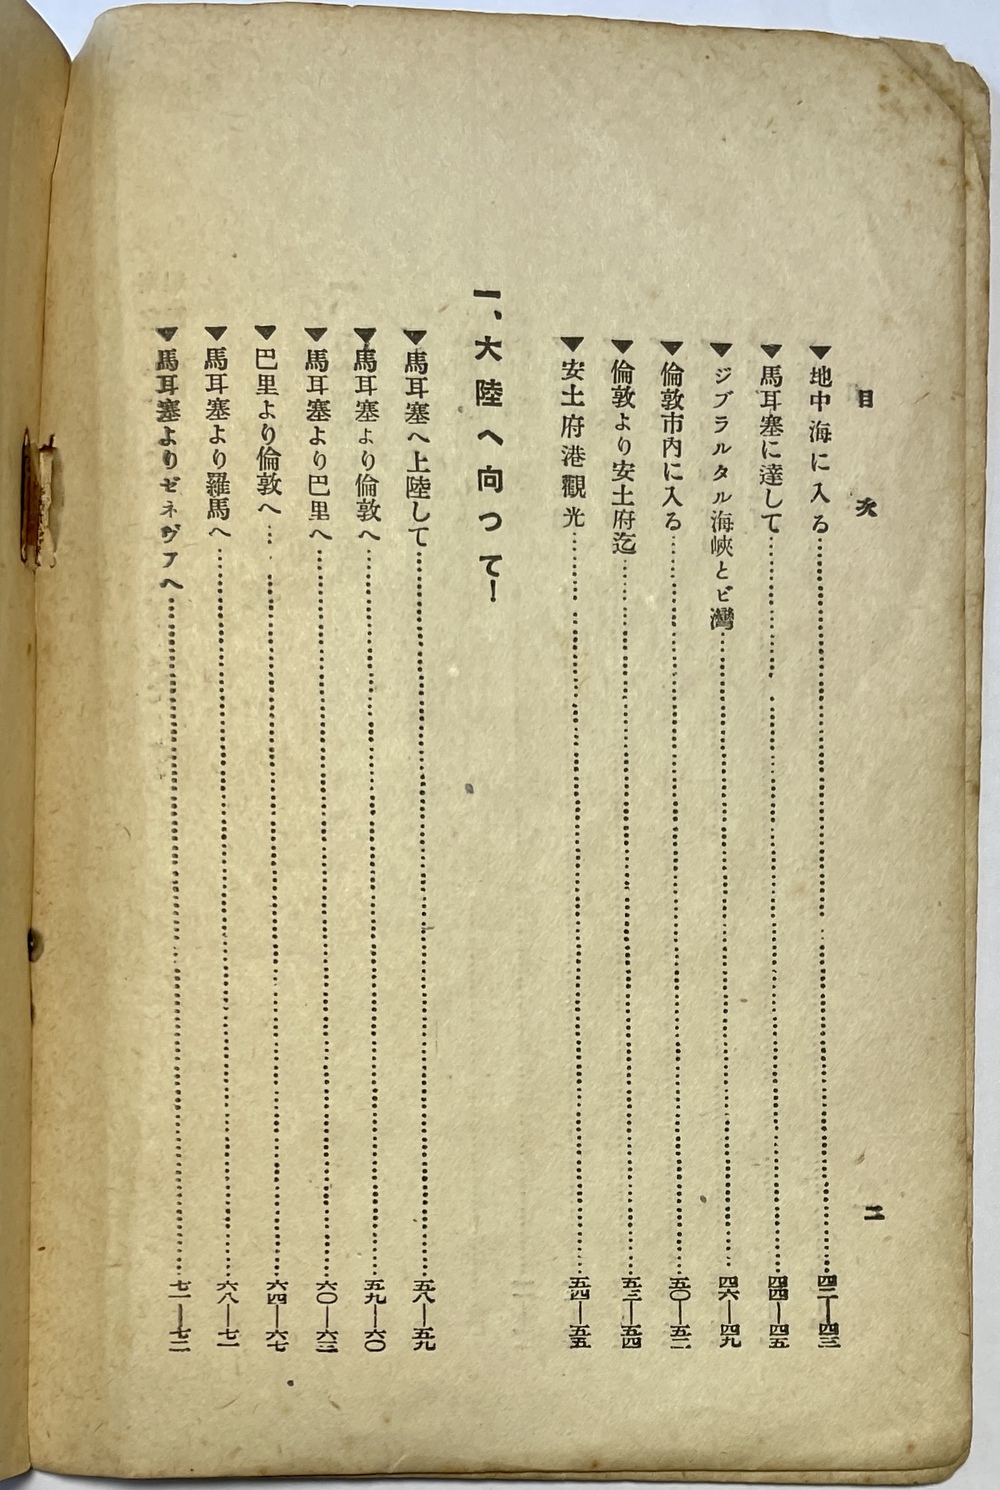 目次 二
▼地中海に入る……四二―四三
▼馬耳塞に達して……四四―四五
▼ジブラルタル海峽とビ灣……四六―四九
▼倫敦市內に入る……五〇―五二
▼倫敦より安土府迄……五三―五四
▼安土府港觀光……五四―五五
一、大陸へ向つて!
▼馬耳塞へ上陸して……五八―五九
▼馬耳塞より倫敦へ……五九―六〇
▼馬耳塞より巴里へ……六〇―六三
▼巴里より倫敦へ……六四―六七
▼馬耳塞より羅馬へ……六八―七一
▼馬耳塞よりゼネヴアへ……七一―七二